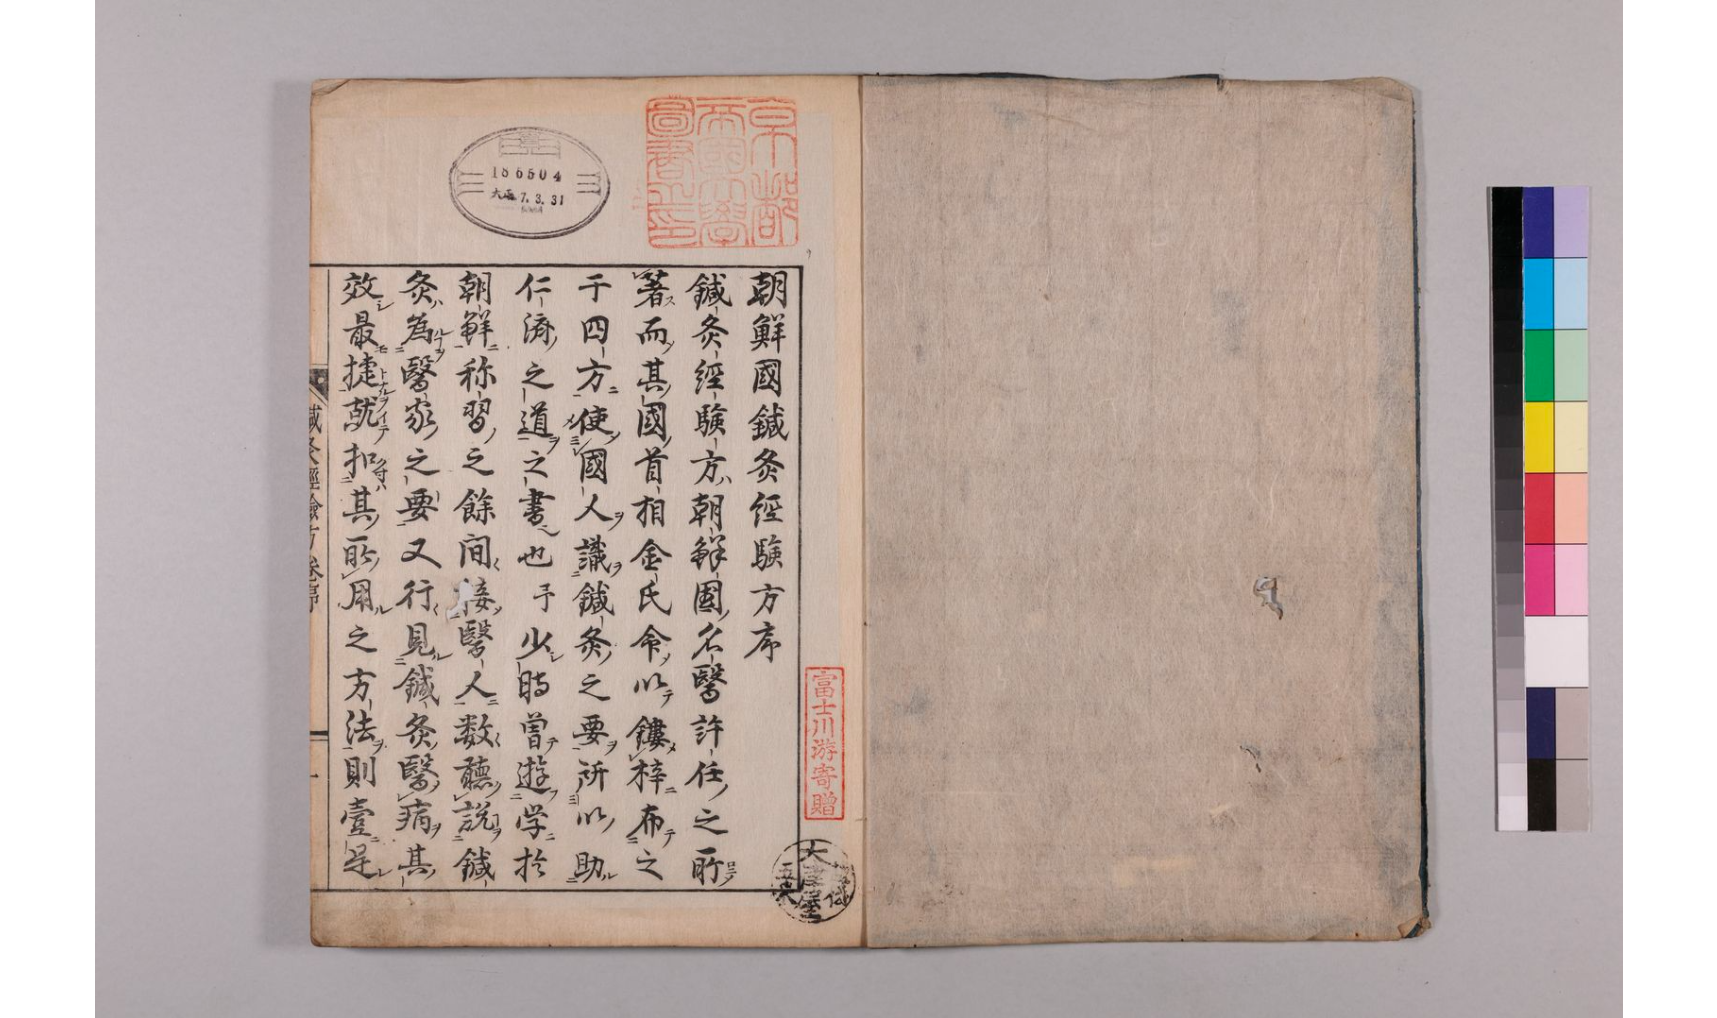 京都
帝國大學
圖書之印
186504
大正7.3.31
朝鮮國鍼灸経験方序
鍼灸經験方朝鮮國名醫許任之所
著而其國首相金氏命以鏤梓布之
于四方使國人識鍼灸之要所以助
仁済之道之書也予少時曽遊学於
朝鮮称習之餘間接醫人数聽説鍼
灸為醫家之要又行見鍼灸醫病其
效最捷就扣其所用之方法則壹是
鍼灸經驗方卷序
一
富士川游寄贈